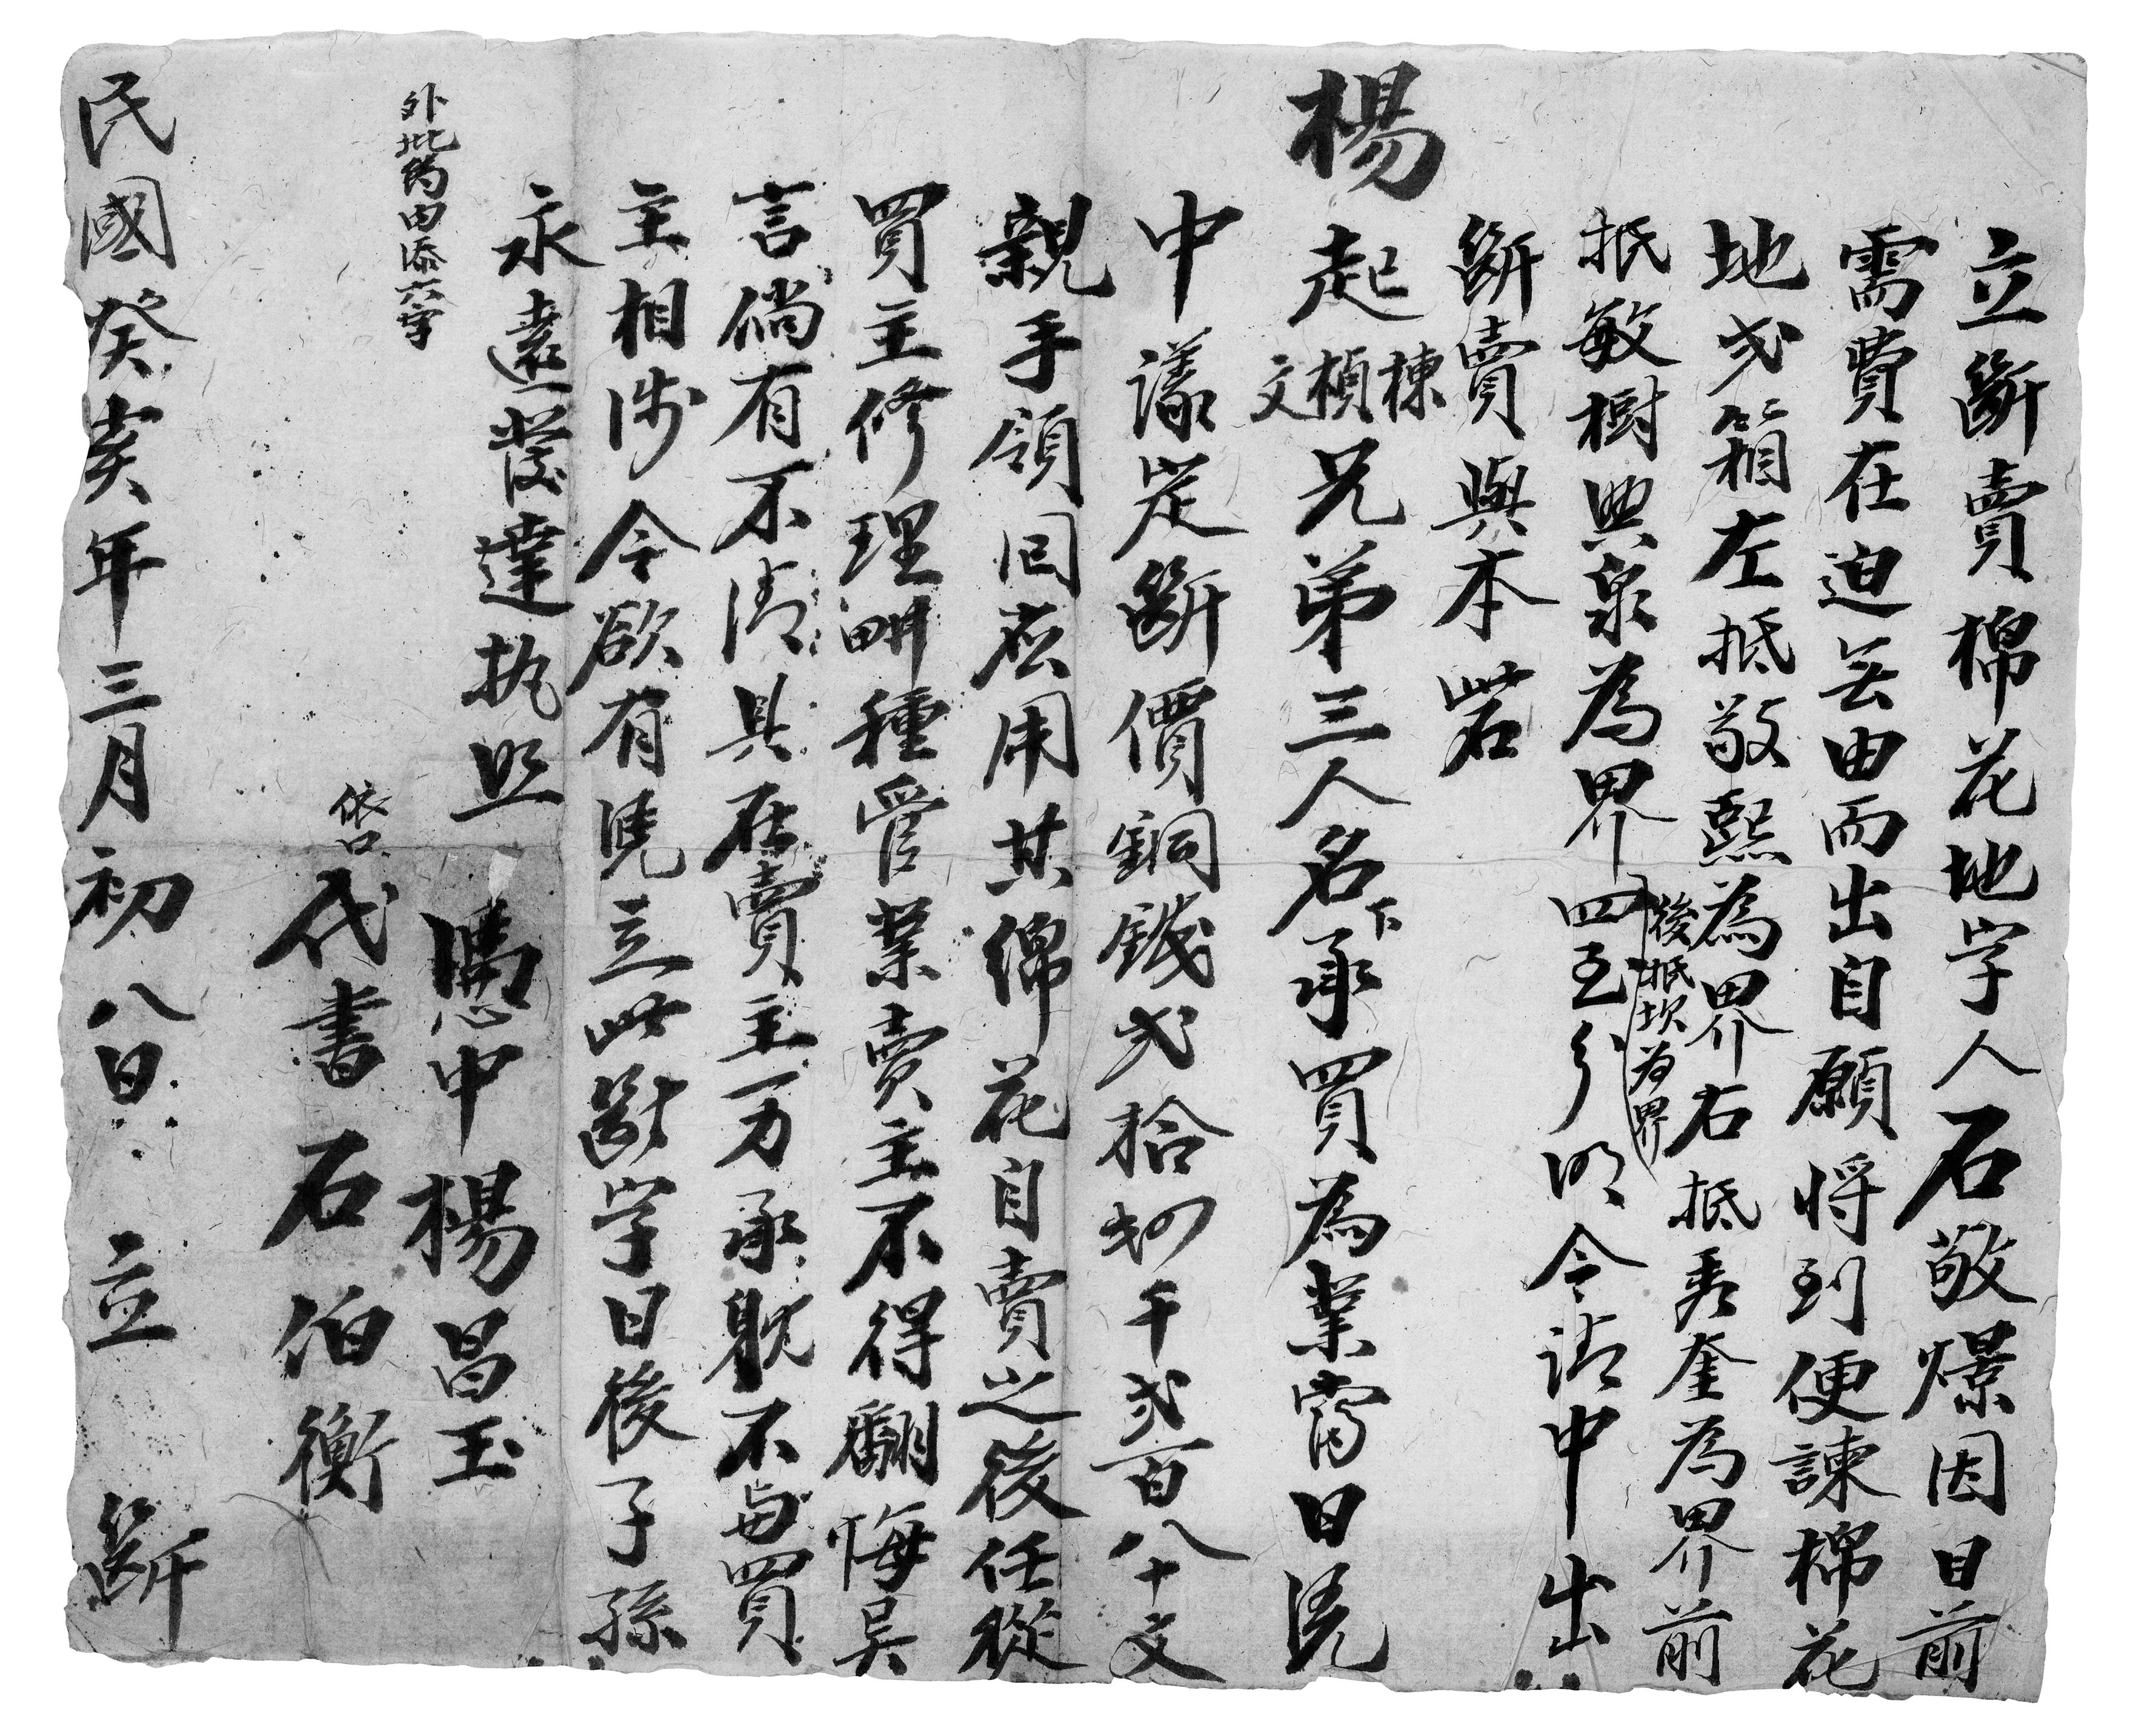 立斷賣棉花地字人石敬燝因目前
需費在迫無由而出自願將到便諫棉花
地弍箱左抵敬熙為界右抵秀奎為界前
後抵坎為界
抵敏樹興泉為界四至分明今請中出
斷賣與本砦
楊起棟楨文兄弟三人名下承買為業當日凴
中議定斷價銅錢弍拾四千弍百八十文
親手領回應用其綿花自賣之後任從
買主修理畊種管業賣主不得翻悔異
言倘有不清具在賣主一力承躭不與買
主相涉今欲有凴立此斷字日後子孫
永遠發達執照
外批約內添六字
憑中楊昌玉
依口代書石伯衡
民國癸亥年三月初八日立斷